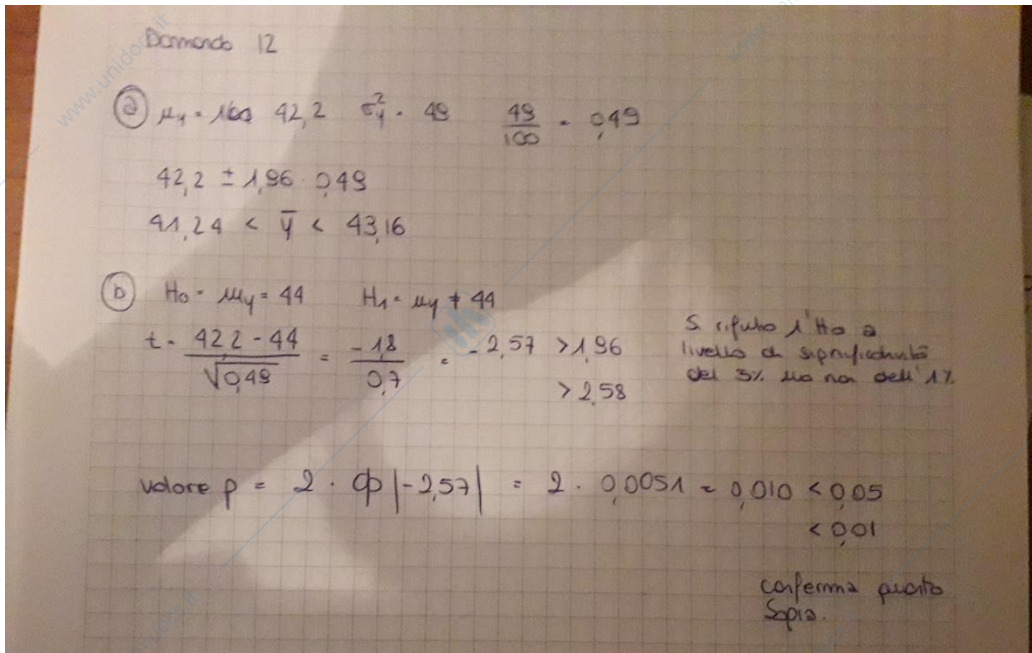 Domanda 12
a) μy = 42,2 σ²y = 49 49/100 = 0,49
42,2 ± 1,96 · 0,49
41,24 < ȳ < 43,16
b) H0 = μy = 44 H1 = μy ≠ 44
t = 42,2 - 44 / √0,49 = -1,8 / 0,7 = -2,57 > 1,96
> 2,58
Si rifiuta l'H0 a
livello di significatività
del 5% ma non dell'1%
valore p = 2 · Φ |-2,57| = 2 · 0,0051 = 0,010 < 0,05
< 0,01
conferma quanto
sopra.